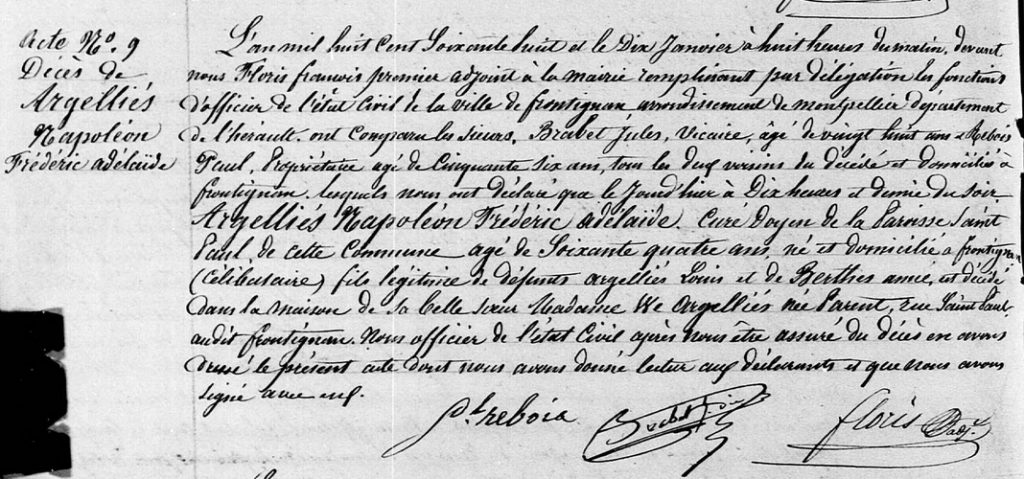 Acte No. 9
Décès de
Argelliés
Napoléon
Frédéric adélaïde
L'an mil huit cent Soixante huit et le Dix Janvier à huit heures du matin, devant
nous Floris françois premier adjoint à la mairie remplissant par délégation les fonctions
d'officier de l'état Civil de la ville de frontignan arrondissement de montpellier département
de l'hérault. ont Comparu les Sieurs, Brabet Jules, Vicaire, âgé de vingt huit ans & Rebois
Paul, Propriétaire agé de Cinquante Six ans, tous les deux voisins du décédé et domiciliés à
frontignan, lesquels nous ont déclaré que le Jourd'hier à Dix heures et demie du soir
Argelliés Napoléon Frédéric adélaïde. Curé Doyen de la Paroisse Saint
Paul, de cette Commune agé de Soixante quatre ans, né et domicilié à frontignan
(Célibataire) fils légitime de défunts argelliés Louis et de Berthes anne, est décédé
dans la maison de sa belle sœur Madame Ve Argelliés née Parent, rue Saint Paul
audit frontignan. Nous officier de l'état Civil après nous être assuré du décès en avons
dressé le présent acte dont nous avons donné lecture aux déclarants et que nous avons
signé avec eux.
Pl rebois
floris adj.